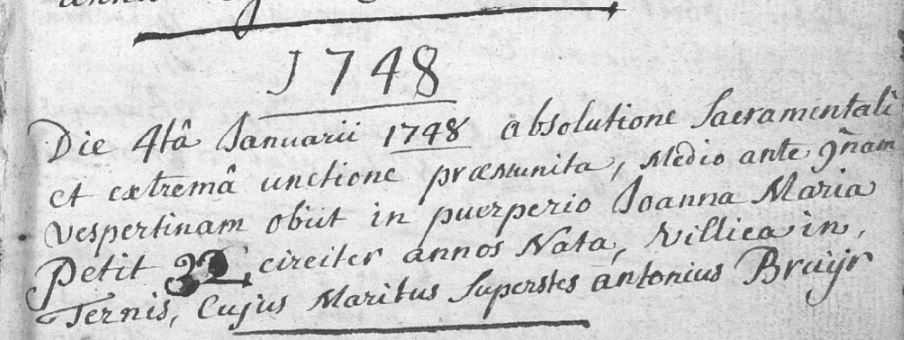 1748
Die 4tâ Januarii 1748 absolutione Sacramentali
et extremâ unctione præmunita, Medio ante 9nam
vespertinam obiit in puerperio Joanna Maria
Petit 32 circiter annos Nata, villica in
Ternis, Cujus Maritus Superstes antonius Bruijr